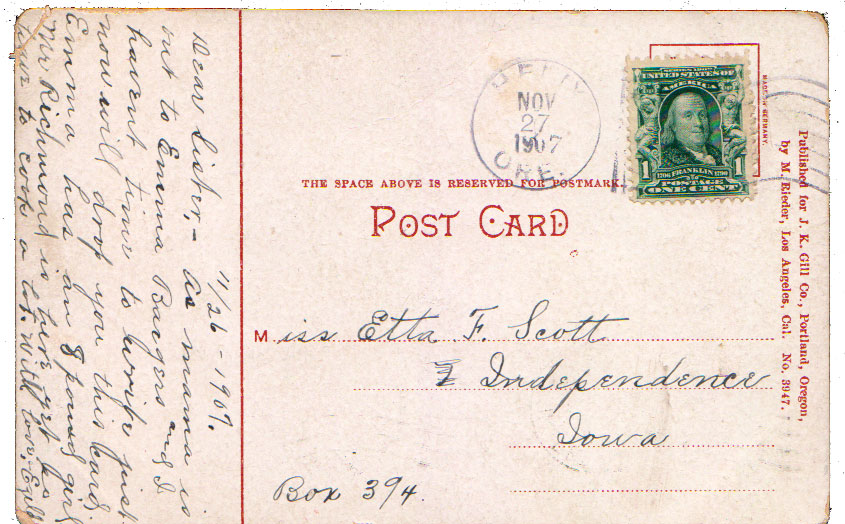 11/26-1907.
Dear Sister,- As mama is
out to Emma Bargers and I
havent time to write just
now will drop you this card,
Emma has an 8 pound girl
Mr Richmond is here yet so
have to cook a lot. With love,
NOV
27
1907
ORE.
MADE IN GERMANY.
SERIES 1902
UNITED STATES OF
AMERICA
1706 FRANKLIN 1790
1 POSTAGE 1
ONE CENT
THE SPACE ABOVE IS RESERVED FOR POSTMARK.
POST CARD
Miss Etta F. Scott
Independence
Iowa
Box 394.
Published for J. K. Gill Co., Portland, Oregon,
by M. Rieder, Los Angeles, Cal. No. 3947.